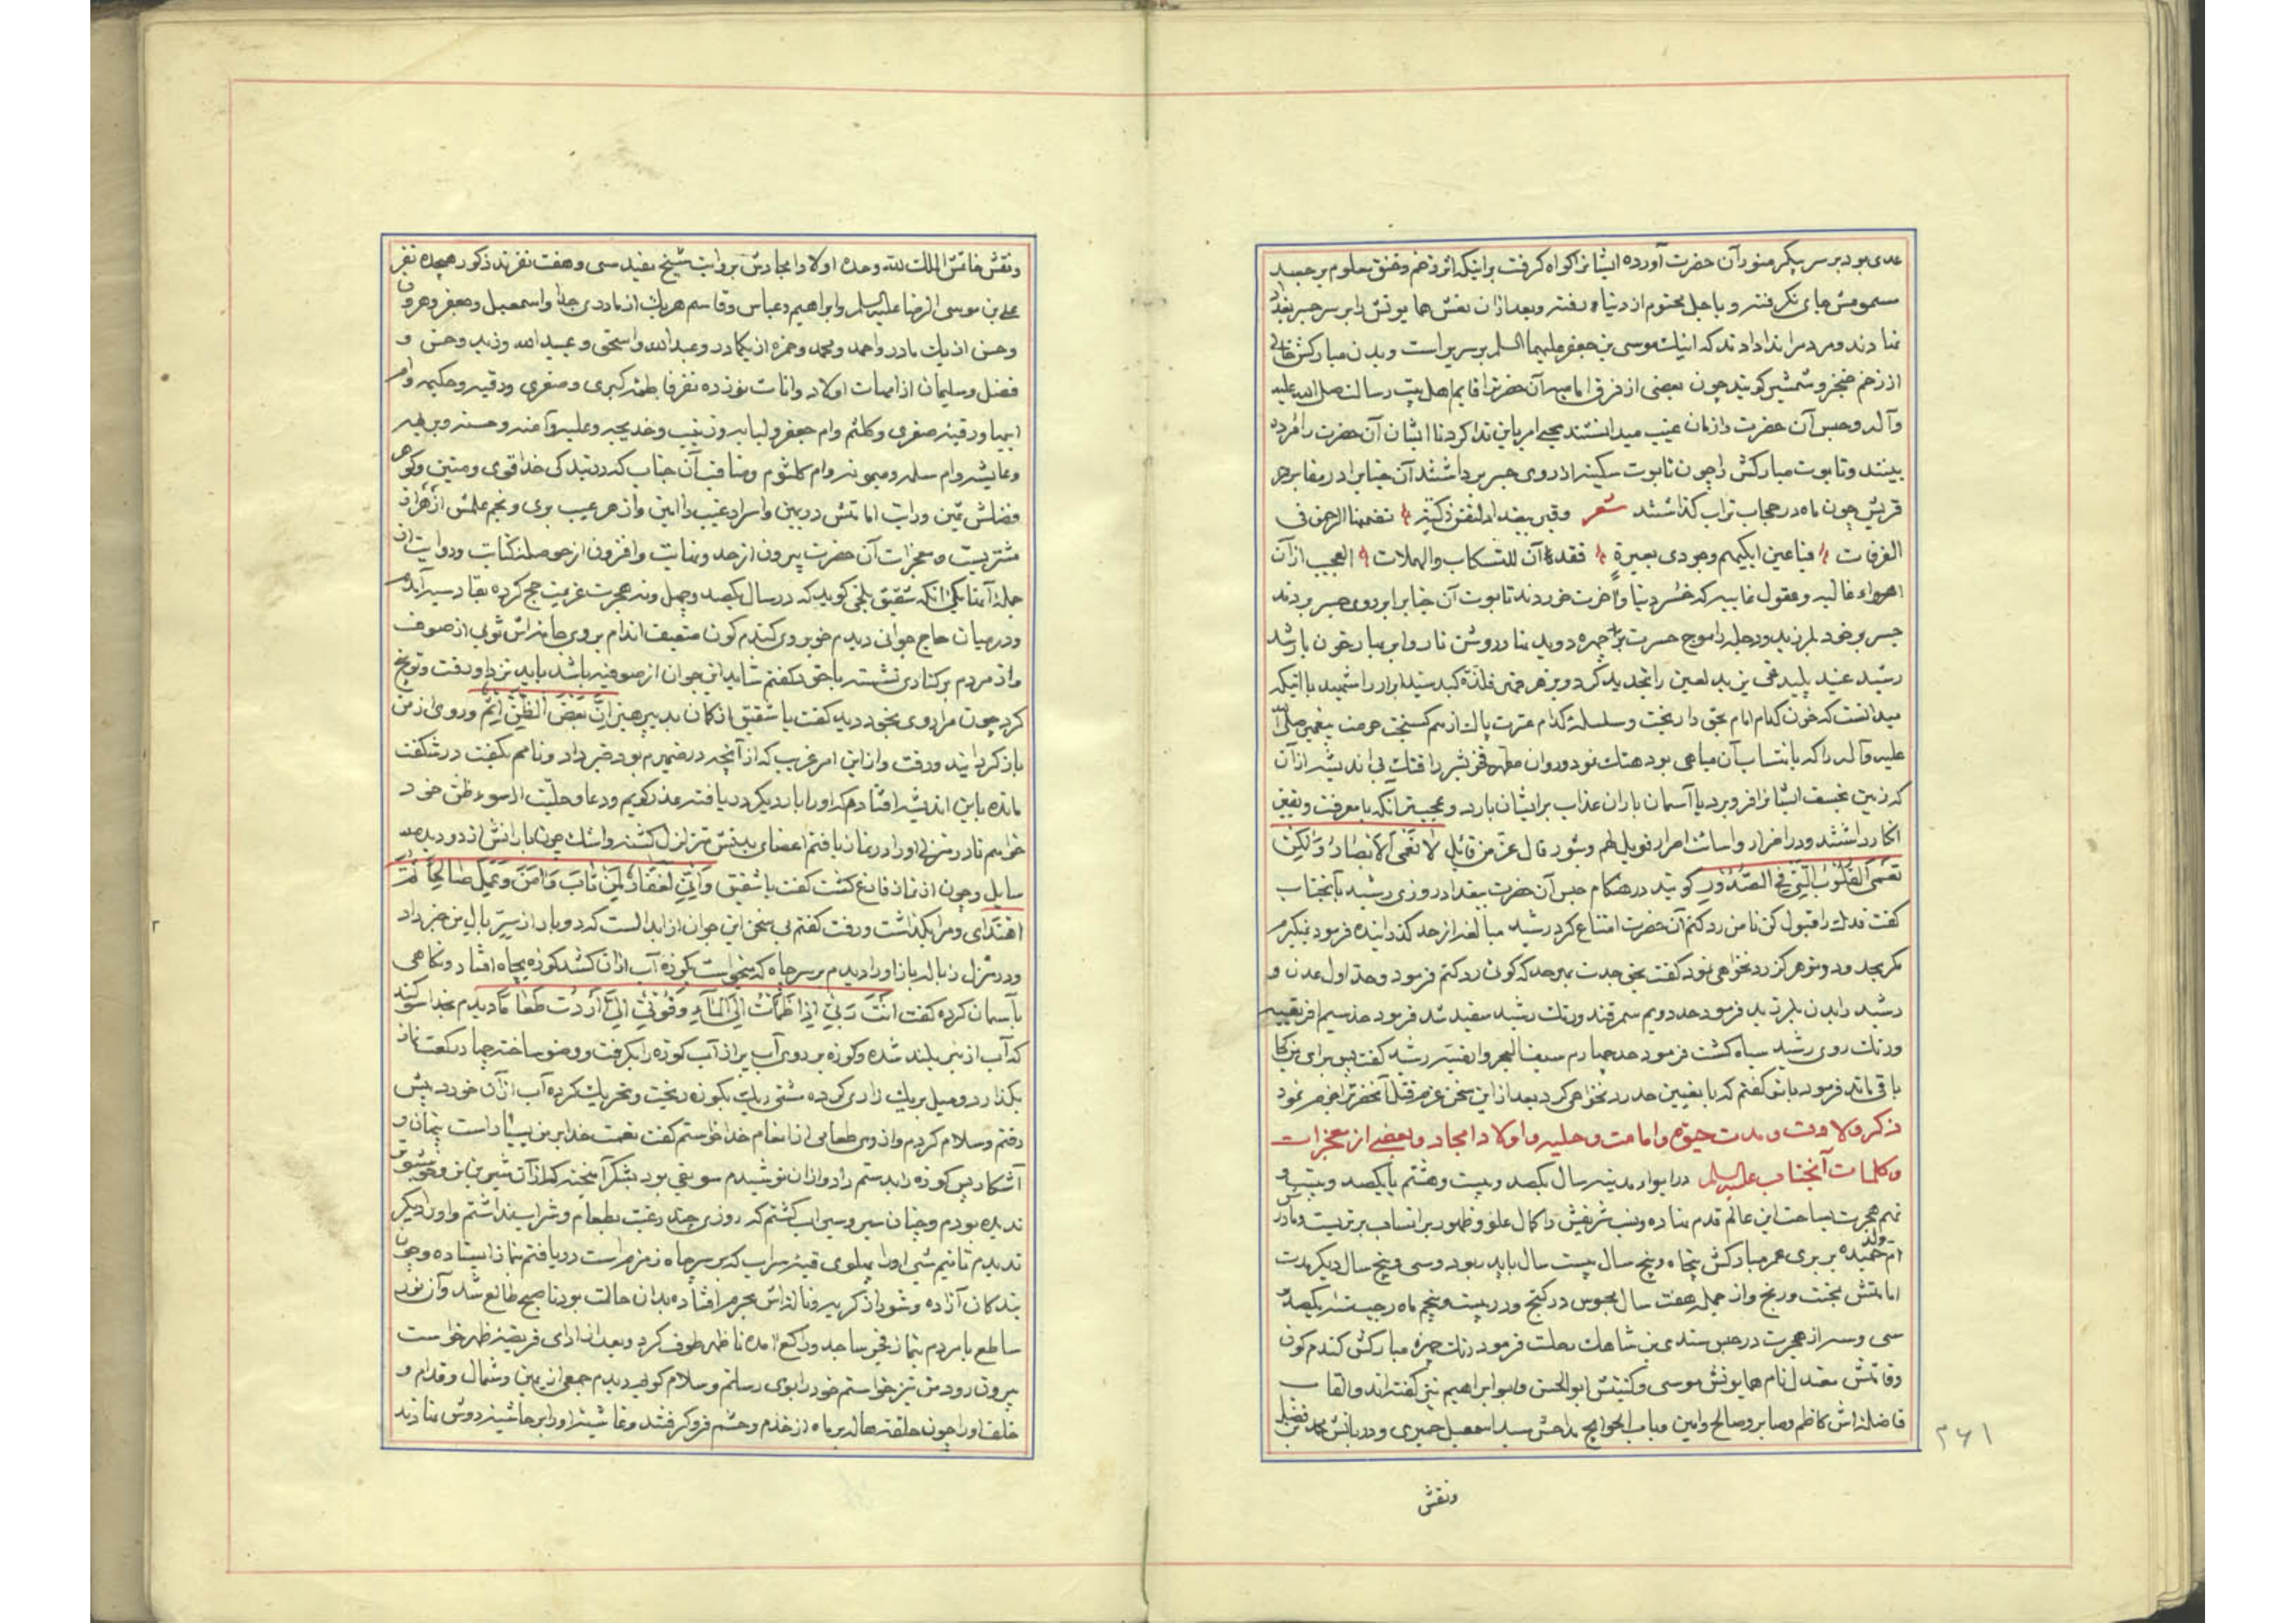 عدی بود بر سر پیکر منور آن حضرت آورده ایشانرا کواه کرفت بر اینکه اثر زخم و خنق معلوم بر جسد
مسمومش جای نکرفته و باجل محتوم از دنیا رفته و بعد از آن نعش همایونش را بر سر جسر بغداد
نهادند و مردم را ندا دادند که اینک موسی بن جعفر علیهما السلم بر سریر است و بدن مبارکش خالی
از زخم خنجر و شمشیر کویند چون بعضی از فرق امامیه آن حضرترا قایم اهل بیت رسالت صلی الله علیه
وآله و حبس آن حضرت را زمان غیبت میدانستند یحیی امر باین ندا کرد تا ایشان آن حضرت را مرده
بینند و تابوت مبارکش را چون تابوت سکینه از روی جسر برداشتند آن جنابرا در مقابر
قریش چون ماه در حجاب تراب کذاشتند شعر وقبر ببغداد لنفس زکیة تضمنها الرحمن فی
الغرفات فیاعین ابکیهم وجودی بعبرة فقد آن للتسکاب والهملات العجب از آن
اهواء غالیه و عقول غاییه که خسر دنیا و آخرت خوردند تابوت آن جنابرا بر روی جسر بردند
جسر بر خود بلرزید و دجله را موج حسرت بر چهره دوید بنا در روشن تار و ابر ببار خون بار شد
رشید عنید پلید فی یزید لعین را تجدید کرد و بزهر قهر فلذه کبد سید ابرار را شهید با اینکه
میدانست که خون کدام امام بحق را ریخت و سلسلۀ کدام عترت پاک از هم کسیخت حرمت پیغمبر صلی الله
علیه وآله را که بانتساب آن مباهی بود هتک نمود و روان مطهر را بی اندیشه از آن
که زمین بخسف ایشانرا فرو برد یا آسمان باران عذاب بر ایشان بارد و عجبتر آنکه با معرفت و یقین
انکار داشتند و در اضرار و اسائت اصرار فویل لهم وثبور قال عز من قائل لا تعمی الابصار ولکن
تعمی القلوب التی فی الصدور کویند در هنکام حبس آن حضرت ببغداد روزی رشید بآنجناب
کفت فدک را قبول کن تا من رد کنم آن حضرت امتناع کرد رشید مبالغه از حد کذرانیده فرمود نمیکیرم
مکر بحدود و تو هرکز رد نخواهی نمود کفت بحق جدت بهر حد که کوئی رد کنم فرمود حد اول عدن و
رشید را بدن بلرزید فرمود حد دویم سمرقند و رنک رشید سفید شد فرمود حد سیم افریقیه
و رنک روی رشید سیاه کشت فرمود حد چهارم سیف البحر رشید کفت پس برای من کجا
باقی ماند فرمود با تو کفتم که با تعیین حد رد نخواهی کرد بعد از این سخن عزم قتل آنحضرترا جزم نمود
ذکر ولادت و مدت حیوة و امامت و حلیه و اولاد امجاد و بعضی از معجزات
و کلمات آنجناب علیه السلم در ابواء مدینه سال یکصد و بیست و هشتم یا یکصد و بیست و
نهم هجرت بساحت این عالم قدم نهاده و نسب شریفش را کمال علو و ظهور بر انساب برتریست و مادرش
ام ولد حمیده بربری عمر مبارکش پنجاه و پنج سال بیست سال با پدر بود و سی و پنج سال دیکر مدت
امامتش بمحنت و رنج و از جمله هفت سال محبوس در کنج و در بیست و پنجم ماه رجب سنه یکصد و
سی و سه از هجرت در حبس سندی بن شاهک رحلت فرمود رنک چهره مبارکش کندم کون
و قامتش معتدل نام همایونش موسی و کنیتش ابوالحسن و ابو ابراهیم نیز کفته اند و القاب
فاضله اش کاظم و صابر و صالح و امین و باب الحوایج مداحش سید اسمعیل حمیری و دربانش محمد بن فضل
ونقش
۲۶۱
ونقش خاتمش الملک لله وحده اولاد امجادش بروایت شیخ مفید سی و هفت نفرند ذکور هیجده نفر
علی بن موسی الرضا علیه السلم و ابراهیم و عباس و قاسم هریک از مادری جدا و اسمعیل و جعفر و هرون
و حسن از یک مادر و احمد و محمد و حمزه از یکمادر و عبدالله و اسحق و عبیدالله و زید و حسن و
فضل و سلیمان از امهات اولاد و اناث نوزده نفر فاطمه کبری و صغری و رقیه و حکیمه و ام
ابیها و رقیه صغری و کلثم و ام جعفر و لبابه و زینب و خدیجه و علیه و آمنه و حسنه و بریهه
و عایشه و ام سلمه و میمونه و ام کلثوم و مناقب آن جناب که در بندکی خدا قوی و متین و کوهر
فضلش ثمین و رایت امامتش در بین و اسرار غیب را امین و از هر عیب بری و نجم علمش از هزاران
مشتریست و معجزات آن حضرت بیرون از حد و نهایت و افزون از حوصله کتابت و روایت از
جمله آنها یکی آنکه شقیق بلخی کوید که در سال یکصد و چهل و نه هجرت عزیمت حج کرده بقادسیه آمدم
و در میان حاج جوانی دیدم خوبروی کندم کون ضعیف اندام بر روی جامه اش ثوبی از صوف
و از مردم بر کناری نشسته با خود کفتم شاید این جوان از صوفیه باشد باید نزد او رفت و توبیخ
کرد چون مرا روی بخود دید کفت یا شقیق از کمان بد بپرهیز ان بعض الظن اثم و روی از من
باز کردانید و رفت و از این امر غریب که از آنچه در ضمیرم بود خبر داد و نامم بکفت در شکفت
مانده باین اندیشه افتادم که او را بار دیکر دریافته عذر کویم و دعا و حلیت از سوء ظن خود
خواهم تا در منزلی او را در نماز یافتم اعضای بدنش متزلزل کشته و اشک چون بارانش از دو دیده
سایل و چون از نماز فارغ کشت کفت یا شقیق وانی لغفار لمن تاب وآمن وعمل صالحا ثم
اهتدی و مرا بکذاشت و رفت کفتم بی سخن این جوان از ابدالست که دوبار از سر بال من خبر داد
و در منزل زباله باز او را دیدم بر سر چاه که میخواست بکوزه آب از آن کشد کوزه بچاه افتاد و نکاهی
بآسمان کرده کفت انت ربی اذا ظمئت الی الماء وقوتی اذا اردت طعاما دیدم بخدا سوکند
که آب از بئر بلند شده و کوزه بر روی آب پر از آب کوزه را بکرفت و وضو ساخته چهار رکعت نماز
بکذارد و میل بریک زاری کرده مشتی ریک بکوزه ریخت و تحریک کرده آب از آن خورد پیش
رفتم و سلام کردم و از وی طعامی از انعام خدا خواستم کفت نعمت خدا بر من بسیار است پنهان و
آشکار پس کوزه را بدستم داد و از آن نوشیدم سویقی بود بشکر آمیخته که از آن شیرین تر و خوشبوتر
ندیده بودم و چنان سیر و سیراب کشتم که روزی چند رغبت بطعام و شراب نداشتم و او را دیکر
ندیدم تا نیم شبی او را بپهلوی قبه سراب که بر سر چاه زمزم است دریافتم بنماز ایستاده و چون
بندکان آزاده و شور از کریه و ناله اش بحرم افتاده بدان حالت بود تا صبح طالع شد و آن نور
ساطع با مردم بنماز فجر ساجد و راکع آمده تا ظهر طوف کرد و بعد از ادای فریضه ظهر خواست
بیرون رود من نیز خواستم خود را بوی رسانم و سلام کویم دیدم جمعی از یمین و شمال و قدام و
خلف او را چون حلقه هاله بر ماه از خدم و حشم فرو کرفتند و غاشیه او را بر حاشیه دوش نهادند